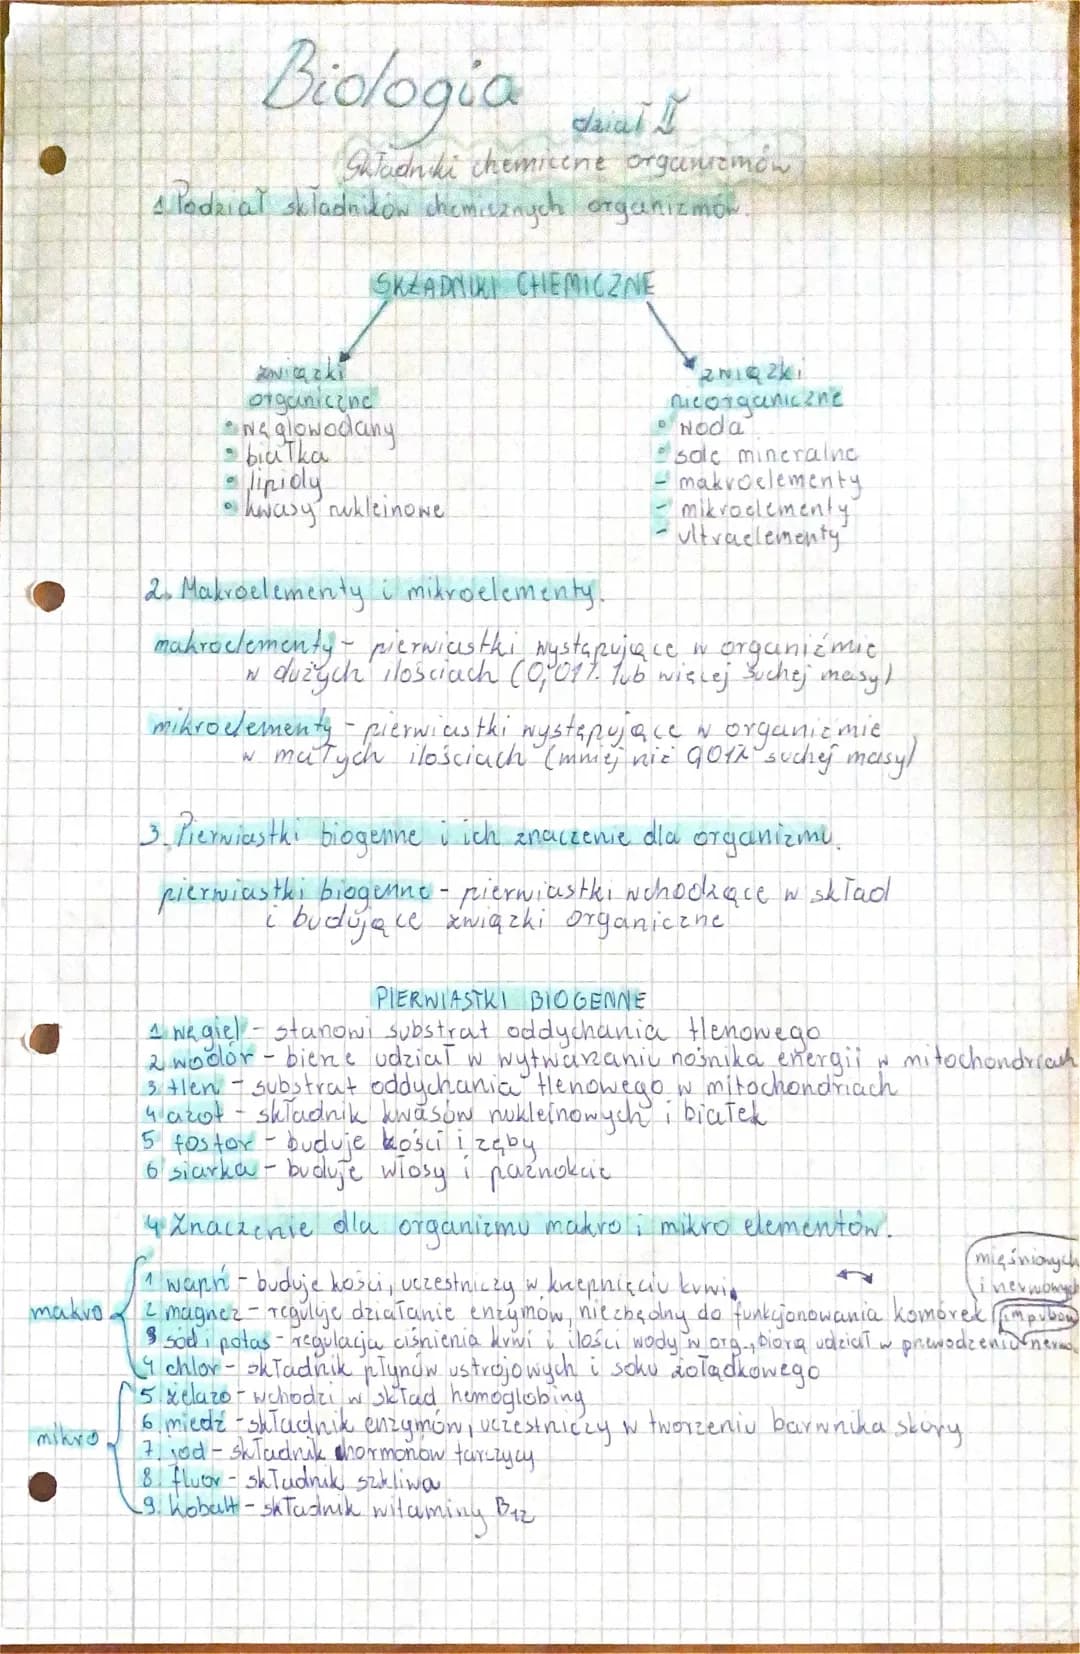 Biologia
dział II
Składniki chemiczne organizmów
1. Podział składników chemicznych organizmów.
SKŁADNIKI CHEMICZNE
związki
organiczne
• węglowodany
• białka
• lipidy
• kwasy nukleinowe
związki
nieorganiczne
• woda
• sole mineralne
- makroelementy
- mikroelementy
- ultraelementy
2. Makroelementy i mikroelementy.
makroelementy - pierwiastki występujące w organiźmie
w dużych ilościach (0,01% lub więcej suchej masy)
mikroelementy - pierwiastki występujące w organizmie
w małych ilościach (mniej niż 0,01% suchej masy)
3. Pierwiastki biogenne i ich znaczenie dla organizmu.
pierwiastki biogenne - pierwiastki wchodzące w skład
i budujące związki organiczne
PIERWIASTKI BIOGENNE
1 węgiel - stanowi substrat oddychania tlenowego
2 wodór - bierze udział w wytwarzaniu nośnika energii w mitochondriach
3 tlen - substrat oddychania tlenowego w mitochondriach
4 azot - składnik kwasów nukleinowych i białek
5 fosfor - buduje kości i zęby
6 siarka - buduje włosy i paznokcie
4 Znaczenie dla organizmu makro i mikro elementów.
mięśniowych
i nerwowych
1 wapń - buduje kości, uczestniczy w krzepnięciu krwi
makro
2 magnez - reguluje działanie enzymów, niezbędny do funkcjonowania komórek
impulsów
3 sód i potas - regulacja ciśnienia krwi i ilości wody w org., biorą udział w przewodzeniu
4 chlor - składnik płynów ustrojowych i soku żołądkowego
5 żelazo - wchodzi w skład hemoglobiny
6. miedź - składnik enzymów, uczestniczy w tworzeniu barwnika skóry
mikro
7. jod - składnik hormonów tarczycy
8. fluor - składnik szkliwa
9. kobalt - składnik witaminy B12